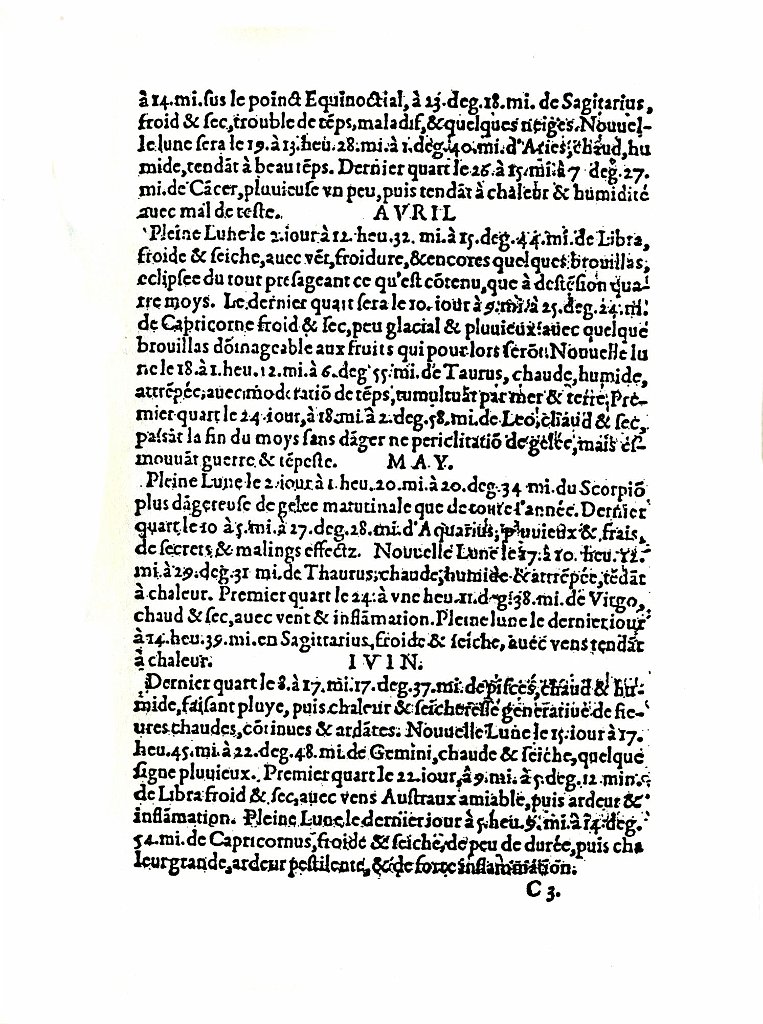 à 14.mi.ſus le poinct Equinoctial, à 23.deg.18.mi. de Sagitarius,
froid & ſec, trouble de tẽps, maladif, & quelques neiges. Nouuel-
le lune ſera le 19. à 13. heu. 28. mi. à 1. deg. 40. mi. d'Aries, chaud, hu
mide, tendãt à beau tẽps. Dernier quart le 26. à 15. mi. à 7 deg. 27.
mi. de Cãcer, pluuieuſe vn peu, puis tendãt à chaleur & humidité
auec mal de teſte. AVRIL
Pleine Lune le 2. iour à 12. heu. 32. mi. à 15. deg. 44. mi. de Libra,
froide & ſeiche, auec vẽt, froidure, & encores quelques brouillas,
eclipſee du tout preſageant ce qu'eſt cõtenu, que à deſtẽſion qua-
tre moys. Le dernier quart ſera le 10. iour à 9. mi. à 25. deg. 24. mi.
de Capricorne froid & ſec, peu glacial & pluuieux auec quelque
brouillas dõmageable aux fruits qui pour lors ſerõt. Nouuelle lu
ne le 18. à 1. heu. 12. mi. à 6. deg 55. mi. de Taurus, chaude, humide,
attrẽpée, auec moderatiõ de tẽps, tumultuãt par mer & terre, Pre-
mier quart le 24. iour, à 18. mi. à 2. deg. 58. mi. de Leo, chaud & ſec,
paſsãt la fin du moys ſans dãger ne periclitatiõ de gelée, mais eſ-
mouuãt guerre & tẽpeſte. MAY.
Pleine Lune le 2. iour à 1. heu. 20. mi. à 20. deg. 34 mi. du Scorpiõ
plus dãgereuſe de gelee matutinale que de toute l'année. Dernier
quart le 10 à 5. mi. à 27. deg. 28. mi. d'Aquarius, pluuieux & frais,
de ſecrets & malings effectz. Nouuelle Lune le 17. à 10. heu. 11.
mi. à 29. deg. 31 mi. de Thaurus, chaude, humide & attrẽpée, tẽdãt
à chaleur. Premier quart le 24. à vne heu. 11. deg 38. mi. de Virgo,
chaud & ſec, auec vent & inflãmation. Pleine lune le dernier iour
à 14. heu. 39. mi. en Sagittarius, froide & ſeiche, auec vens tendãt
à chaleur. IVIN.
Dernier quart le 8. à 17. mi. 17. deg. 37. mi. de piſces, chaud & hu-
mide, faiſant pluye, puis chaleur & ſeichereſſe generatiue de fie-
ures chaudes, cõtinues & ardãtes. Nouuelle Lune le 15. iour à 17.
heu. 45. mi. à 22. deg. 48. mi. de Gemini, chaude & ſeiche, quelque
ſigne pluuieux. Premier quart le 22. iour, à 9. mi. à 5. deg. 12 min.
de Libra froid & ſec, auec vens Auſtraux amiable, puis ardeur &
inflãmation. Pleine Lune le dernier iour à 5. heu. 9. mi. à 14. deg.
54. mi. de Capricornus, froide & ſeiche, de peu de durée, puis cha
leur grande, ardeur peſtilente, & de forte inflammation.
C 3.